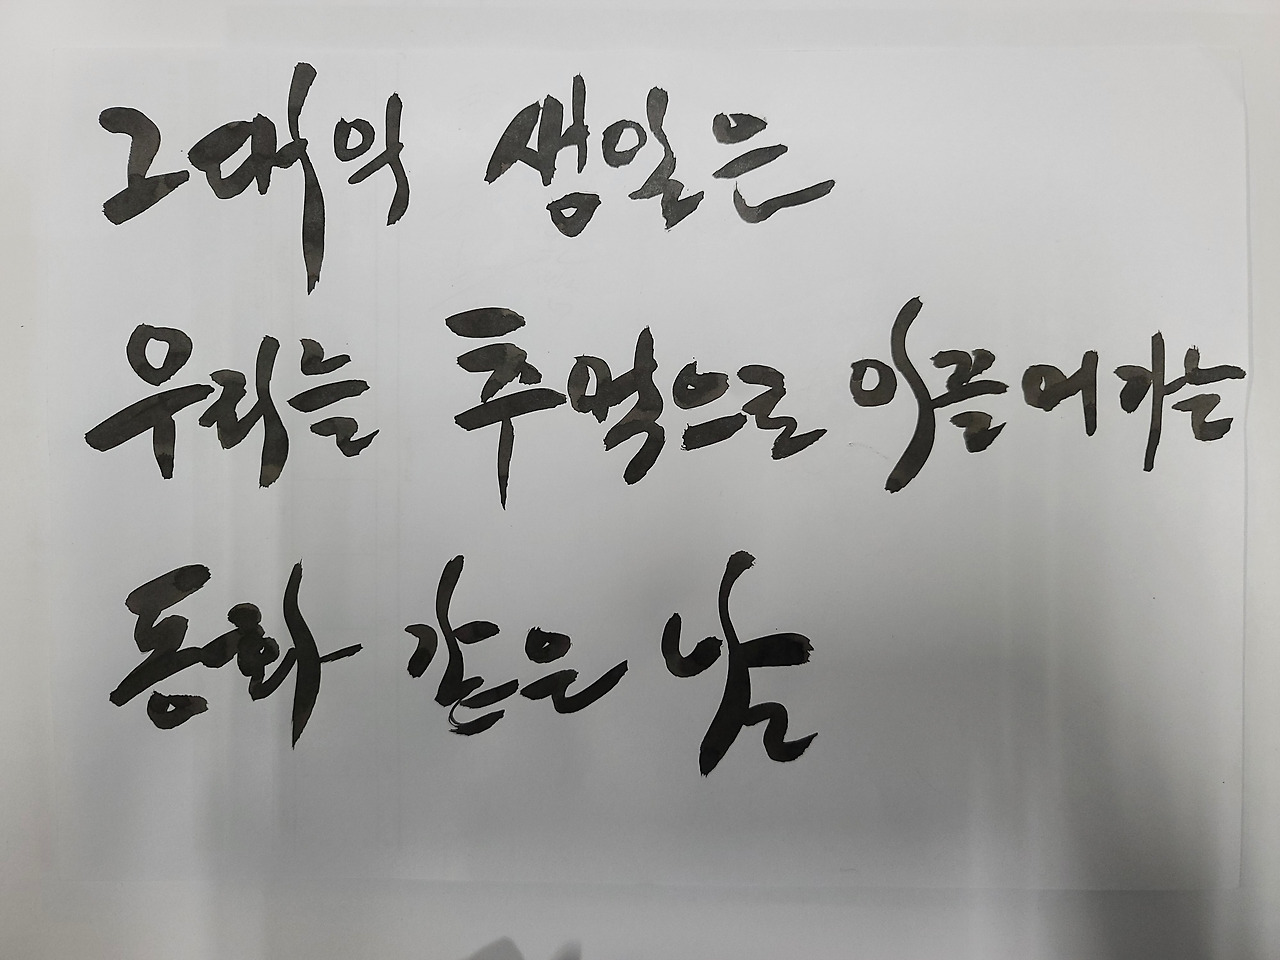 그대의 생일은
우리는 추억으로 이끌어가는
동화 같은 날